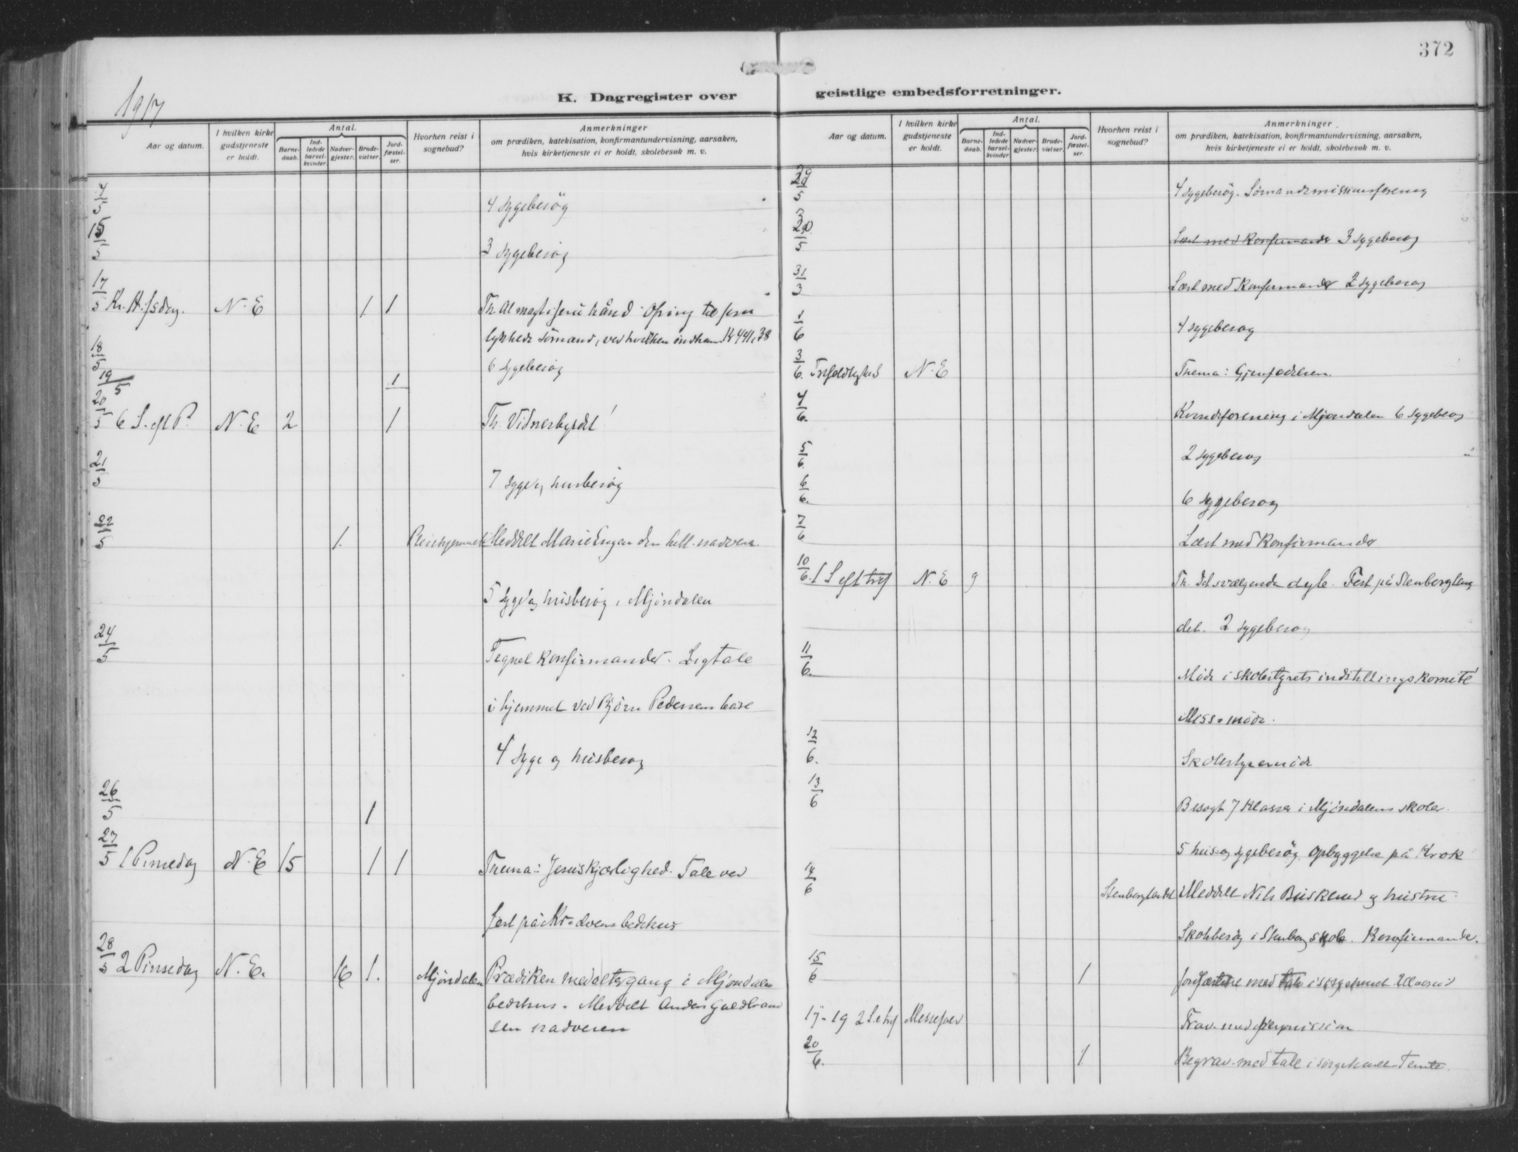 372
1917
K. Dagregister over geistlige embedsforretninger.
Aar og datum.
I hvilken kirke gudstjeneste er holdt.
Antal.
Barnedaab.
Indledede barselkvinder
Nadvergjester.
Brudevielser.
Jordfæstelser.
Hvorhen reist i sognebud?
Anmerkninger
om prædiken, katekisation, konfirmantundervisning, aarsaken, hvis kirketjeneste ei er holdt, skolebesøk m. v.
4/5 4 sygebesög
15/5 3 sygebesög
17/5 Kr. H. fsdag. N. E 1 1 Th. Almagtiges hånd
18/5 6 sygebesög
19/5 1
20/5 6 S. eft P. N. E 2 1 Th. Vidnesbyrdet!
21/5 7 syge og husbesög
22/5 1. Meddelt Marie Engan den hell. nadvere
5 syge og husbesög i Mjöndalen
24/5 Tegnet konfirmander. Ligtale
i hjemmet ved Björn Pedersens båre
4 syge og husbesög
26/5 1
27/5 1 Pinsedag N. E 15 1 1 Thema: Jesu kjærlighed. Tale ved
fest på bedehus
28/5 2 Pinsedag N. E. 16 1. Mjöndalen Prædiken med altergang i Mjöndalen
bedehus. Meddelt Anders Guldbrand
sen nadveren
Aar og datum.
I hvilken kirke gudstjeneste er holdt.
Antal.
Barnedaab.
Indledede barselkvinder
Nadvergjester.
Brudevielser.
Jordfæstelser.
Hvorhen reist i sognebud?
Anmerkninger
om prædiken, katekisation, konfirmantundervisning, aarsaken, hvis kirketjeneste ei er holdt, skolebesøk m. v.
29/5 4 sygebesög. Sömandsmissionsforening
30/5 Læst med konfirmander 3 sygebesög
31/5 Læst med konfirmander 2 sygebesög
1/6 4 sygebesög
3/6. Trefoldighed N. E Thema: Gjenfödelsen
4/6. Kvindeforening i Mjöndalen 6 sygebesög
5/6 2 sygebesög
6/6. 6 sygebesög
7/6 Læst med konfirmander
10/6. 1 S eft tref N. E 9 Th. Det svælgende dyb. Fest på Stenberglan
det. 2 sygebesög
11/6. Möde i skolestyrets indstillingskomite
Messemöde.
12/6. Skolestyremöde
13/6 Besögt 7 klasser i Mjöndalens skoler.
5 hus og sygebesög. Opbyggelse på Krok
14/6 Stenberglandet Meddelt Nils Buskerud og hustru
Skolebesög i Stenberg skole. Konfirmander.
15/6 1 Jordfæstelse med tale i sörgehuset
17-19 2 S. e tref Messefald
20/6. 1 Begrav. med tale i sörgehuset